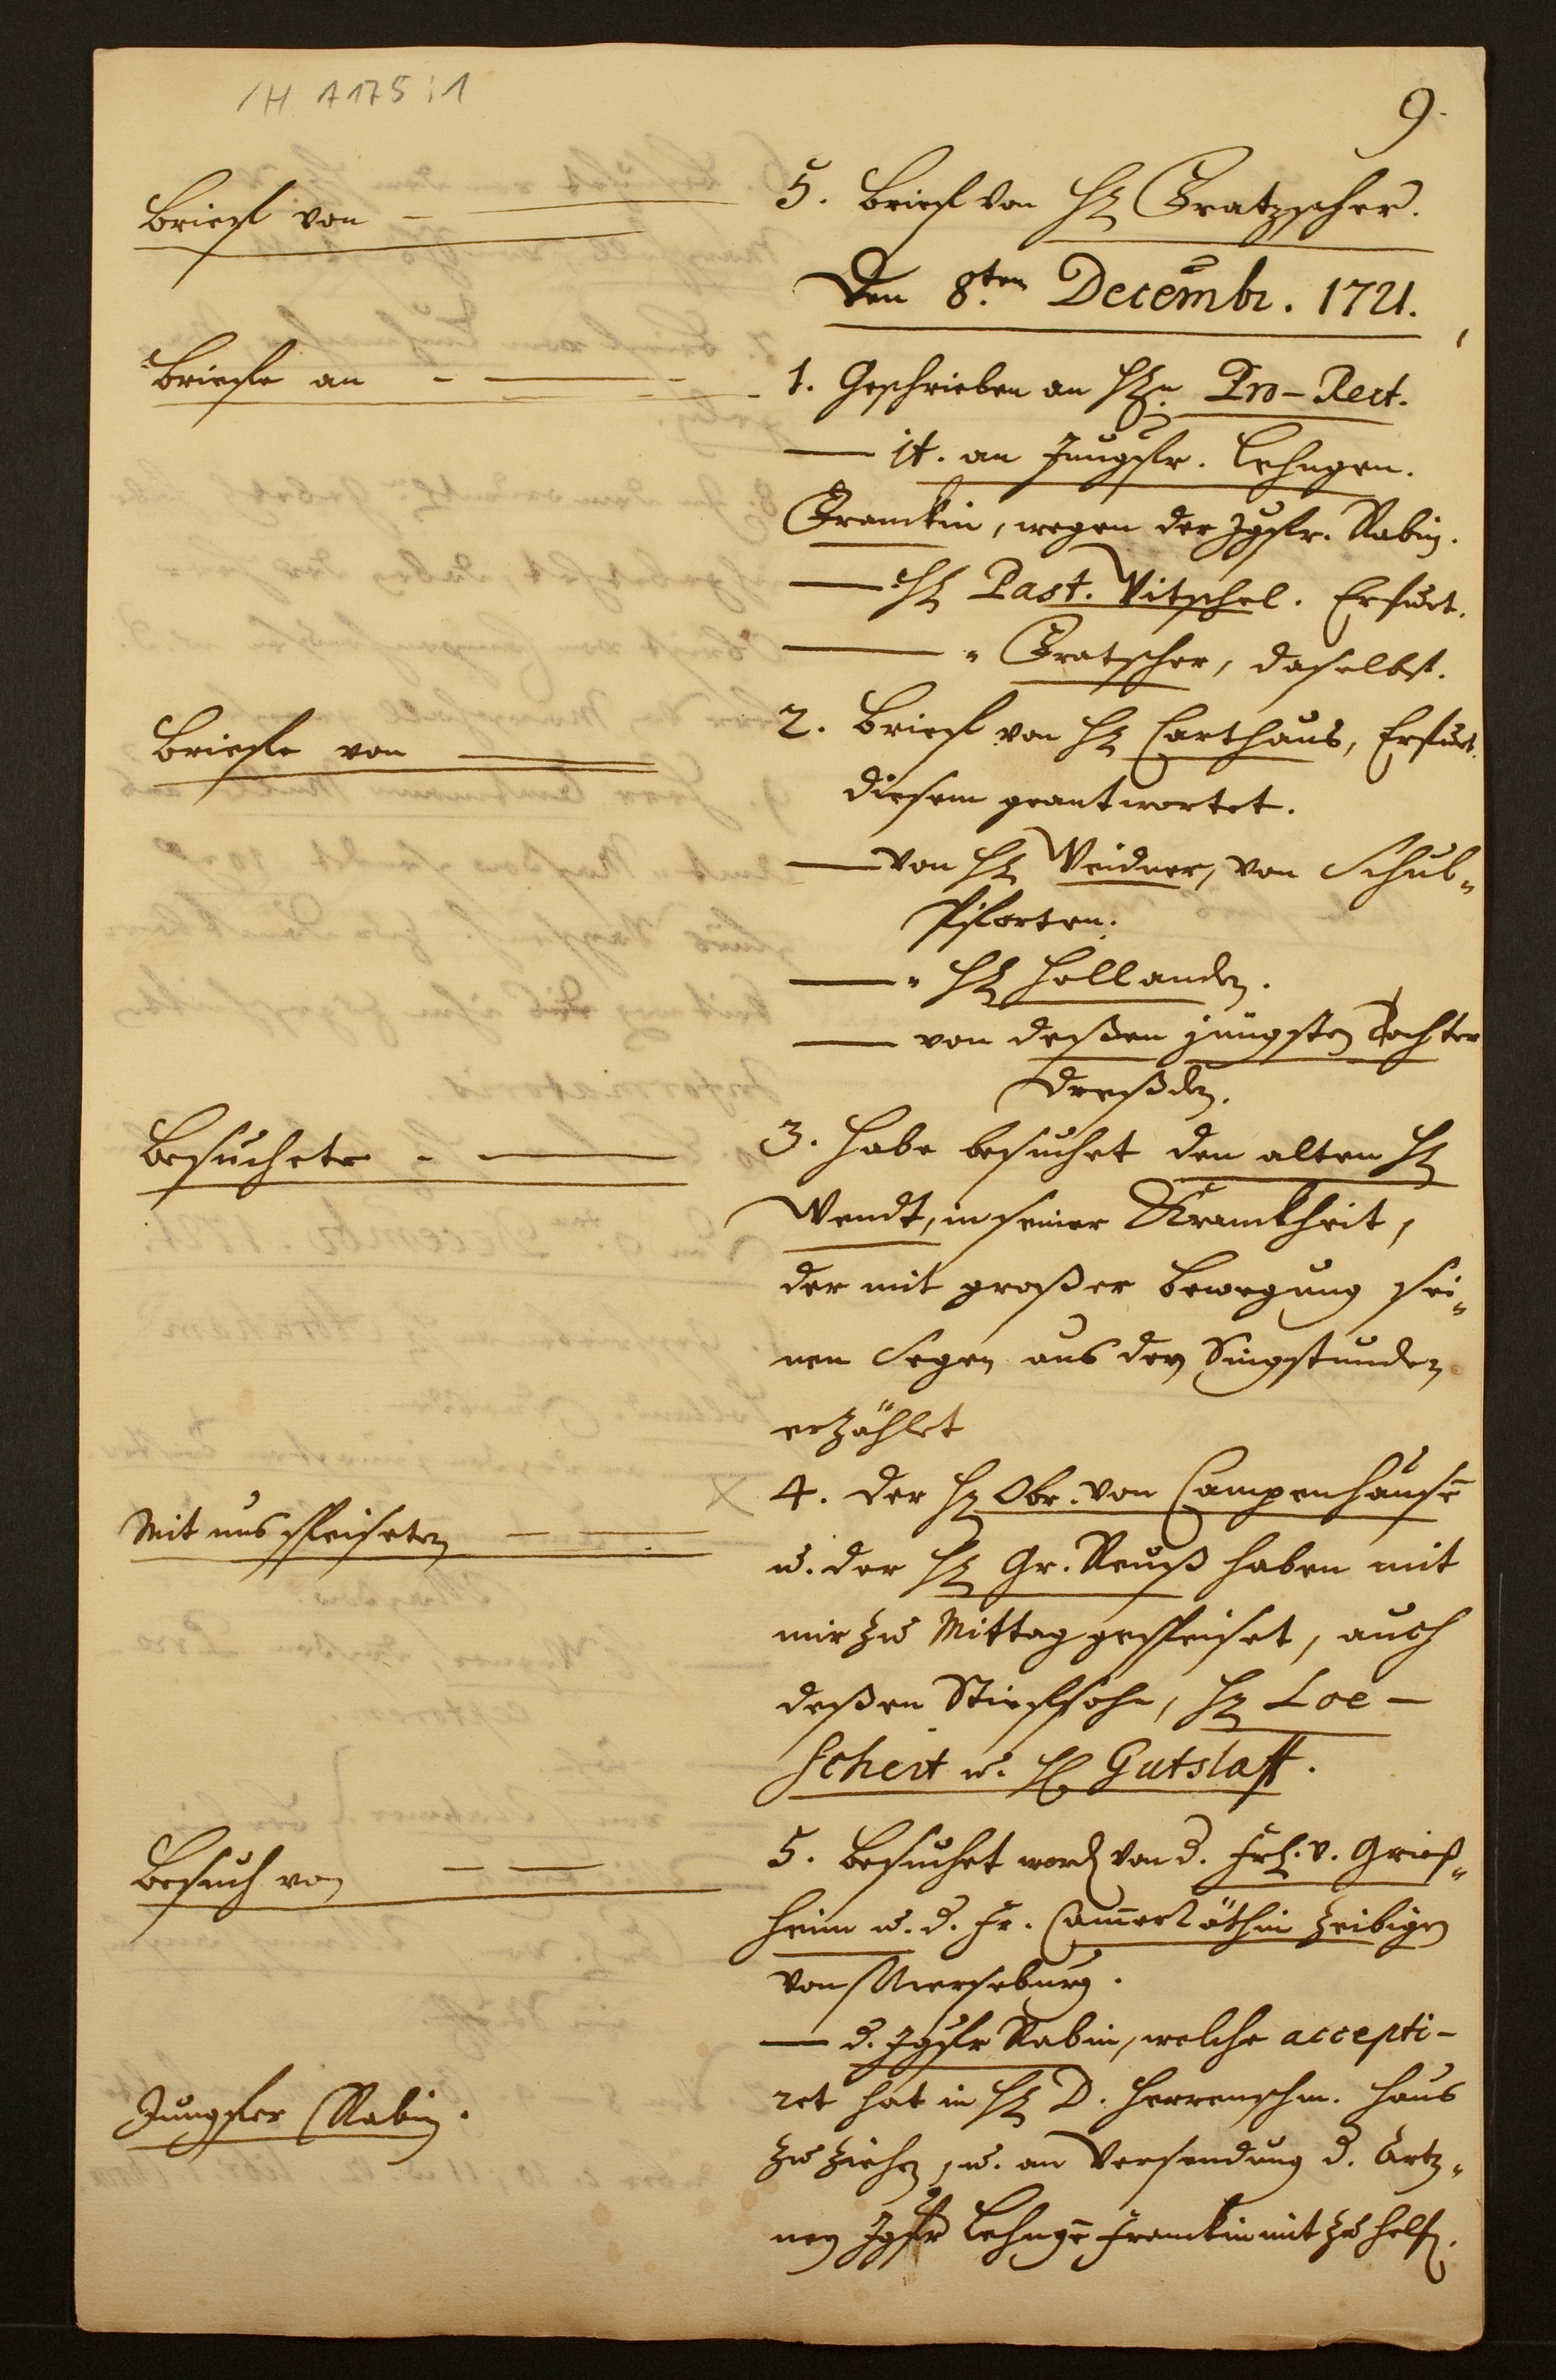 /H A 175 : 1
9.
Brief von
5. Brief von H. Gratzscher.
Den 8.ten Decembr. 1721.
Briefe an
1. Geschrieben an Hn. Pro-Rect.
it. an Jungfr. Lehngen.
Franckin, wegen der Jgfr. Rabin.
H. Past. Vitschel. Erfurt.
" Gratscher, daselbst.
Briefe von
2. Brief von H. Carthaus, Erfurt.
diesem geantwortet.
von H. Weidner, von Schul-
Pforten.
" H. Hollanden.
von deßen jüngsten Tochter
Dreßden.
Besuchete
3. Habe besuchet den alten H.
Wendt, in seiner Kranckheit,
der mit großer Bewegung sei-
nen Segen aus den Singstunden
erzählet
Mit uns speiseten
4. Der H. Obr. von Campenhausen
u. der H. Gr. Reuß haben mit
mir zu Mittag gespeiset, auch
deßen Stiefsohn, H. Loe-
schert u. H. Gutslaff.
Besuch von
5. Besuchet word. von d. Frl. v. Grieß-
heim u. d. Fr. Cammerräthin Zeibigen
von Merseburg.
d. Jgfr Rabin, welche accepti-
ret hat in H. D. Herrenschm. Haus
Jungfer Rabin.
zu ziehen, u. an Versendung d. Artz-
ney Jgfr Lehngen Franckin mit zu helf.